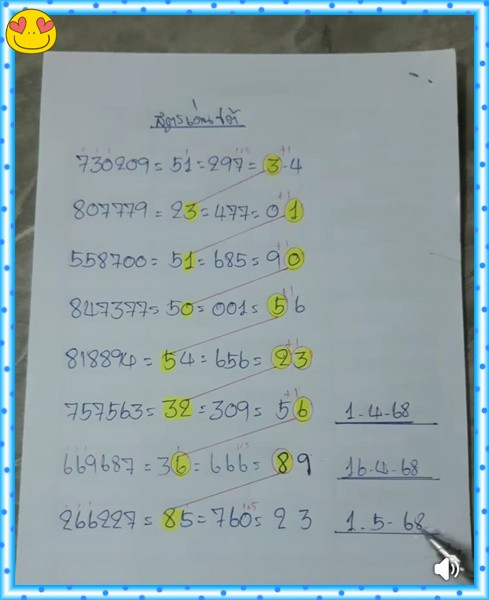 สูตรเด่นชัด
730209 = 51 = 297 = 3-4
807779 = 23 = 477 = 0 1
558700 = 51 = 685 = 9 0
847377 = 50 = 001 = 5 6
818894 = 54 = 656 = 2 3
757563 = 32 = 309 = 5 6 1-4-68
669687 = 36 = 666 = 8 9 16-4-68
266227 = 85 = 760 = 2 3 1-5-68